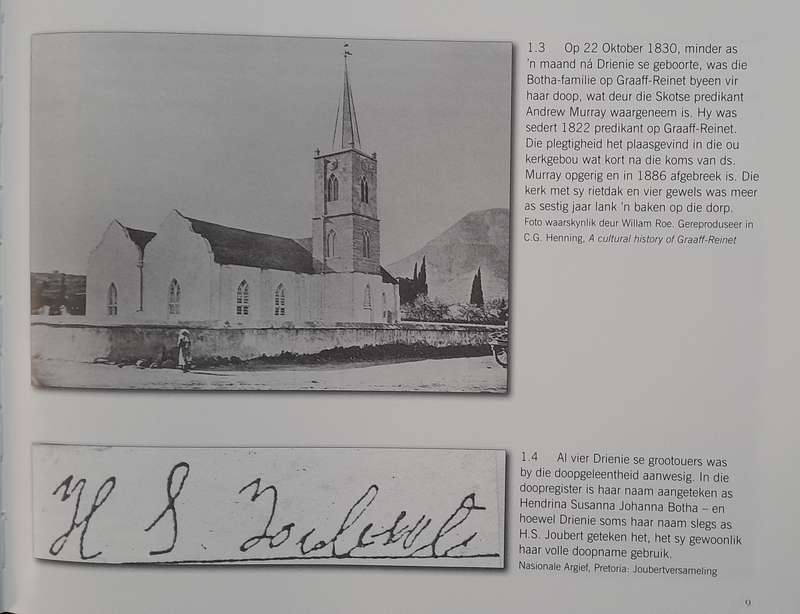 1.3 Op 22 Oktober 1830, minder as
'n maand ná Drienie se geboorte, was die
Botha-familie op Graaff-Reinet byeen vir
haar doop, wat deur die Skotse predikant
Andrew Murray waargeneem is. Hy was
sedert 1822 predikant op Graaff-Reinet.
Die plegtigheid het plaasgevind in die ou
kerkgebou wat kort na die koms van ds.
Murray opgerig en in 1886 afgebreek is. Die
kerk met sy rietdak en vier gewels was meer
as sestig jaar lank 'n baken op die dorp.
Foto waarskynlik deur Willam Roe. Gereproduseer in
C.G. Henning, A cultural history of Graaff-Reinet
H S Joubert
1.4 Al vier Drienie se grootouers was
by die doopgeleentheid aanwesig. In die
doopregister is haar naam aangeteken as
Hendrina Susanna Johanna Botha – en
hoewel Drienie soms haar naam slegs as
H.S. Joubert geteken het, het sy gewoonlik
haar volle doopname gebruik.
Nasionale Argief, Pretoria: Joubertversameling
9